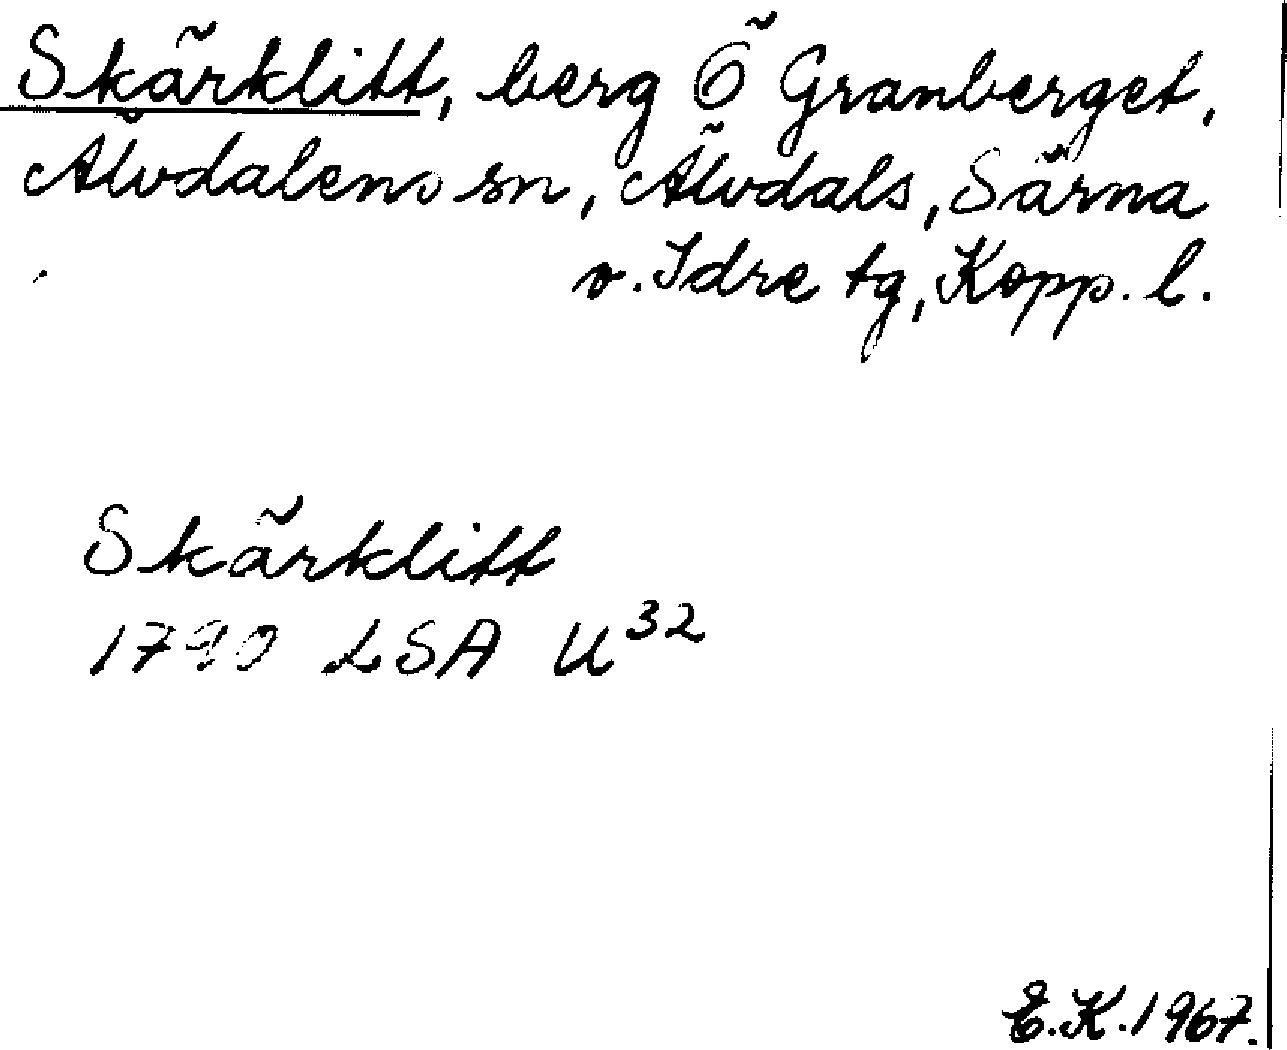 Skärklitt, berg Ö Granberget,
Älvdalens sn, Älvdals, Särna
o. Idre tg, Kopp. l.
Skärklitt
1790 LSA U³²
E.K. 1967.